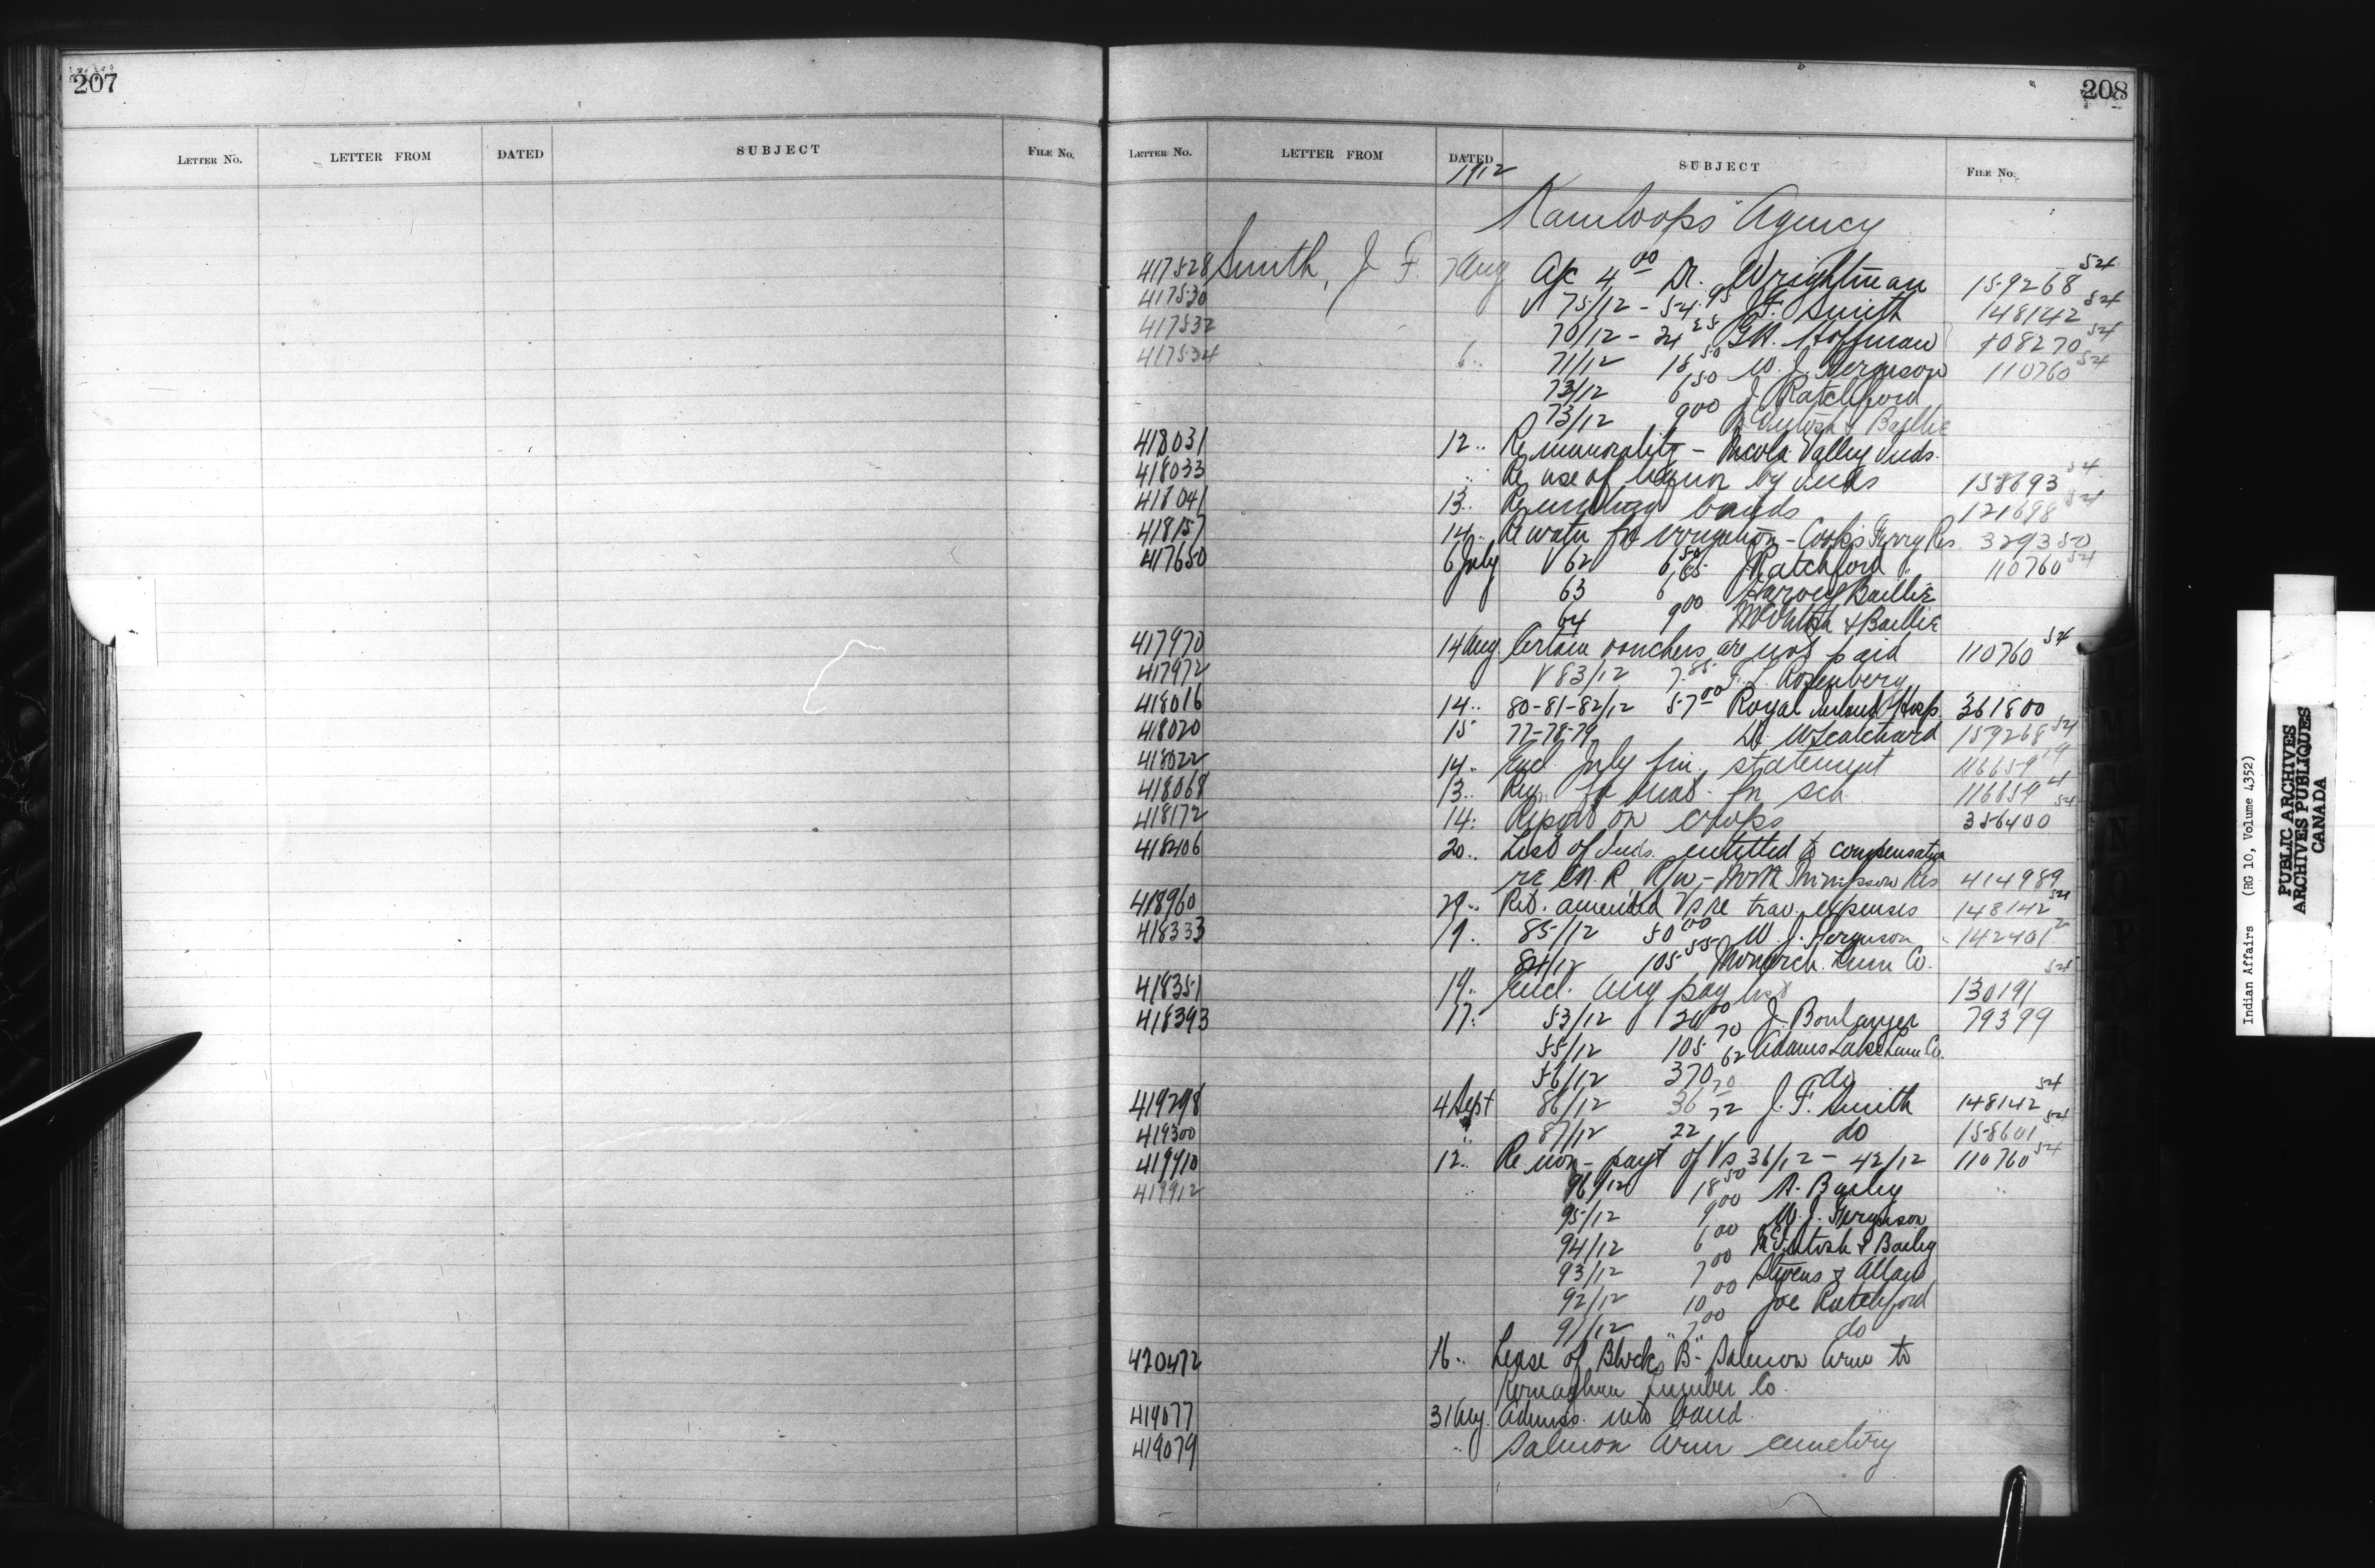 207
LETTER No. LETTER FROM DATED SUBJECT FILE No.
208
LETTER No. LETTER FROM DATED SUBJECT FILE No.
1912
Kamloops Agency
417528 Smith, J F. 7 Aug A/c 4 00 Dr. Wrightman 159268 54
417530 V 75/12 - 54.95 J.F. Smith 148142 54
417532 70/12 - 24 25 G.H. Hoffman 108270 54
417534 6 .. 71/12 18 50 W. J. Ferguson 110760 54
73/12 6 50 J Ratchford
73/12 9 00 McIntosh & Baillie
418031 12 .. Re immorality - Nicola Valley Inds.
418033 .. Re use of liquor by Inds 158693 54
418041 13 .. Re bands 121698 54
418157 14 .. Re water for irrigation - Cook's Ferry Res. 329350
417650 6 July V 62 6 50 J Ratchford 110760 54
63 6 85 Harvey Baillie
64 9 00 McIntosh & Baillie
417970 14 Aug Certain vouchers are not paid 110760 54
417972 V 83/12 7.85 F. L. Rosenberg
418016 14 .. 80-81-82/12 57 00 Royal Inland Hosp. 361800
418020 15 77-78-79 Dr. Weatchard 159268 54
418022 14 .. Encl. July fin. statement 116659 19
418068 13 .. Req. for meat for sch 116659 4
418172 14 .. Report on crops 356400 54
418406 20 .. List of Inds. entitled to compensation
re C.N.R. R/w - North Thompson Res 414989
418960 29 .. Ret. amended Vs re trav. expenses 148142 54
418333 19 .. 85/12 50 00 W. J. Ferguson 142401 2
84/12 105 55 Monarch Lum Co.
418351 19 .. Encl. Aug pay list 130191 54
418393 17 .. 53/12 20 00 J. Boulanger 79399
55/12 105 70 Adams Lake Lum Co.
56/12 370 62 do
419298 4 Sept 86/12 36 20 J. F. Smith 148142 54
419300 .. 87/12 22 72 do 158601 54
419910 12 .. Re non-payt of Vs 36/12 - 42/12 110760 54
419912 .. 96/12 18 50 A. Bailey ..
95/12 9 00 W. J. Ferguson
94/12 6 00 McIntosh & Bailey
93/12 7 00 Stevens & Allan
92/12 10 00 Joe Ratchford
91/12 7 00 do
420472 16 .. Lease of Blocks "B" Salmon Arm to
Kernaghan Lumber Co.
419077 31 Aug. Admiss. into band.
419079 .. Salmon Arm cemetery
Indian Affairs (RG 10, Volume 4352)
PUBLIC ARCHIVES
ARCHIVES PUBLIQUES
CANADA